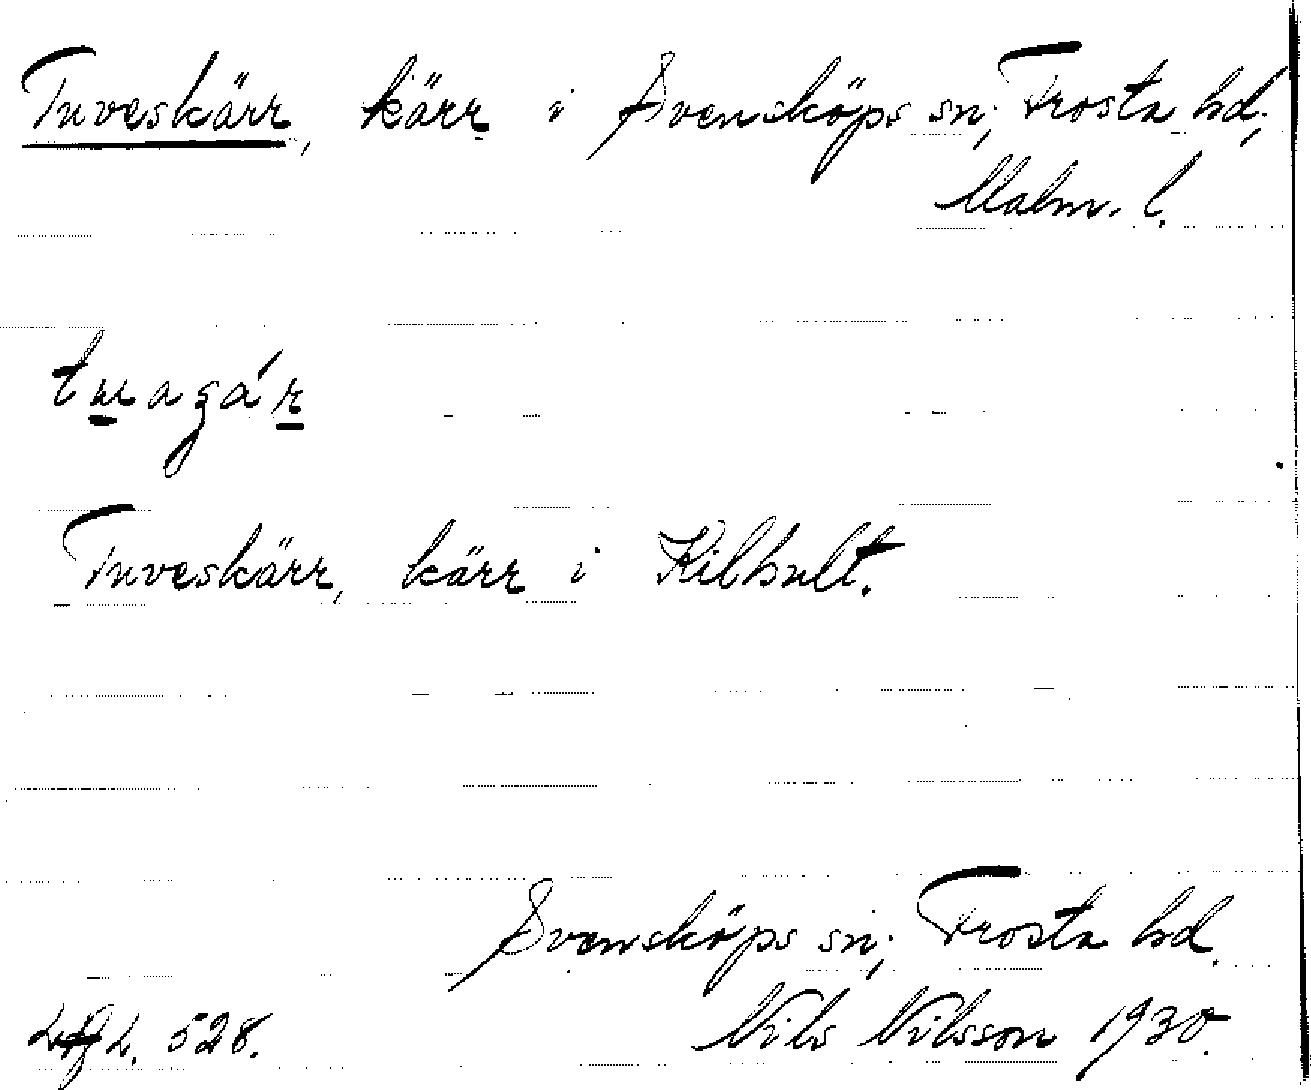 Tuveskärr, kärr i Svensköps sn; Frosta hd;
Malm. l.
Tuveskärr, kärr i Kilhult.
Svensköps sn; Frosta hd.
528. Nils Nilsson 1930.